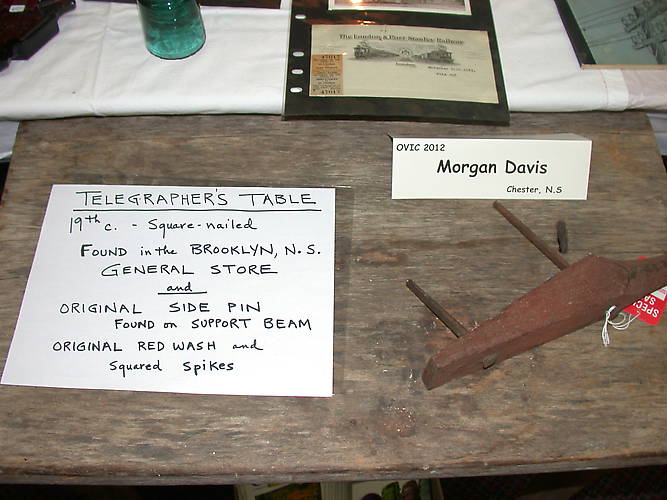 The London & Port Stanley Railway
London,
OVIC 2012
Morgan Davis
Chester, N.S
TELEGRAPHER'S TABLE
19th c. - Square-nailed
FOUND in the BROOKLYN, N.S.
GENERAL STORE
and
ORIGINAL SIDE PIN
FOUND on SUPPORT BEAM
ORIGINAL RED WASH and
Squared Spikes